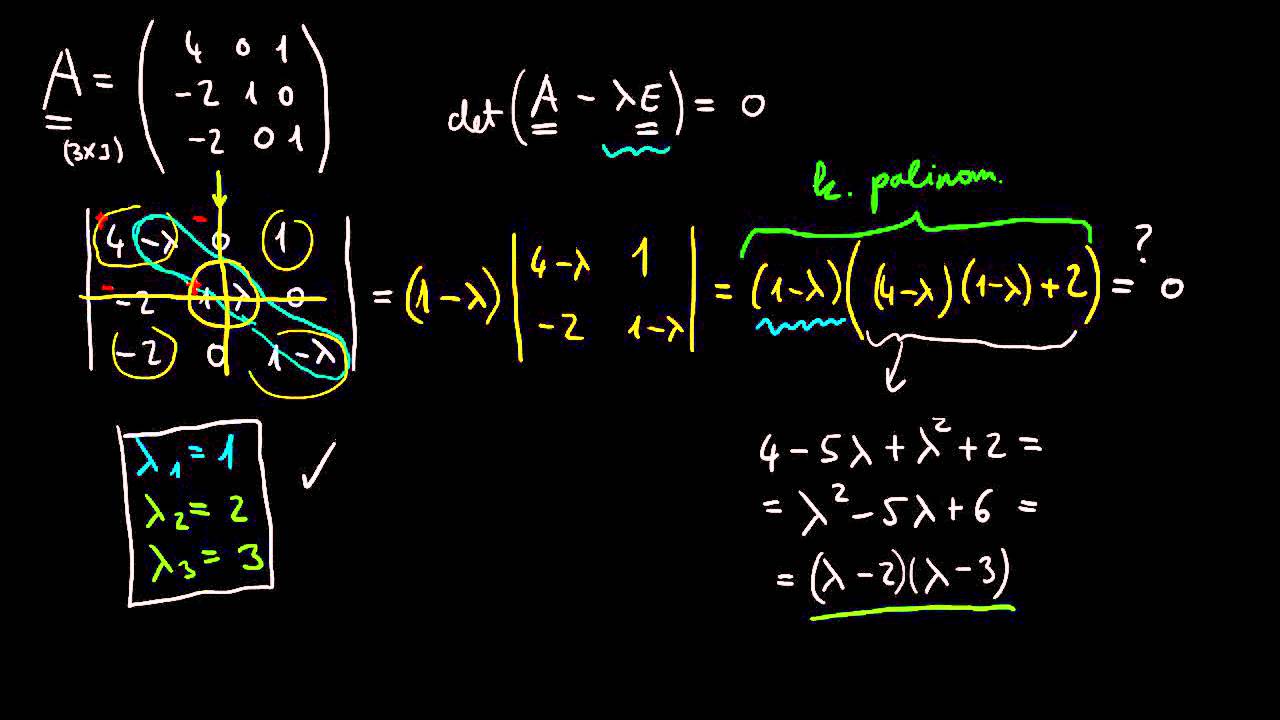 A = ( 4 0 1
-2 1 0
-2 0 1 )
(3x3)
det(A - λE) = 0
k. polinom.
| 4-λ 0 1 |
| -2 1-λ 0 |
| -2 0 1-λ |
= (1-λ) | 4-λ 1 |
| -2 1-λ |
= (1-λ)((4-λ)(1-λ)+2) = 0
?
4-5λ+λ²+2 =
= λ²-5λ+6 =
= (λ-2)(λ-3)
λ₁ = 1
λ₂ = 2
λ₃ = 3